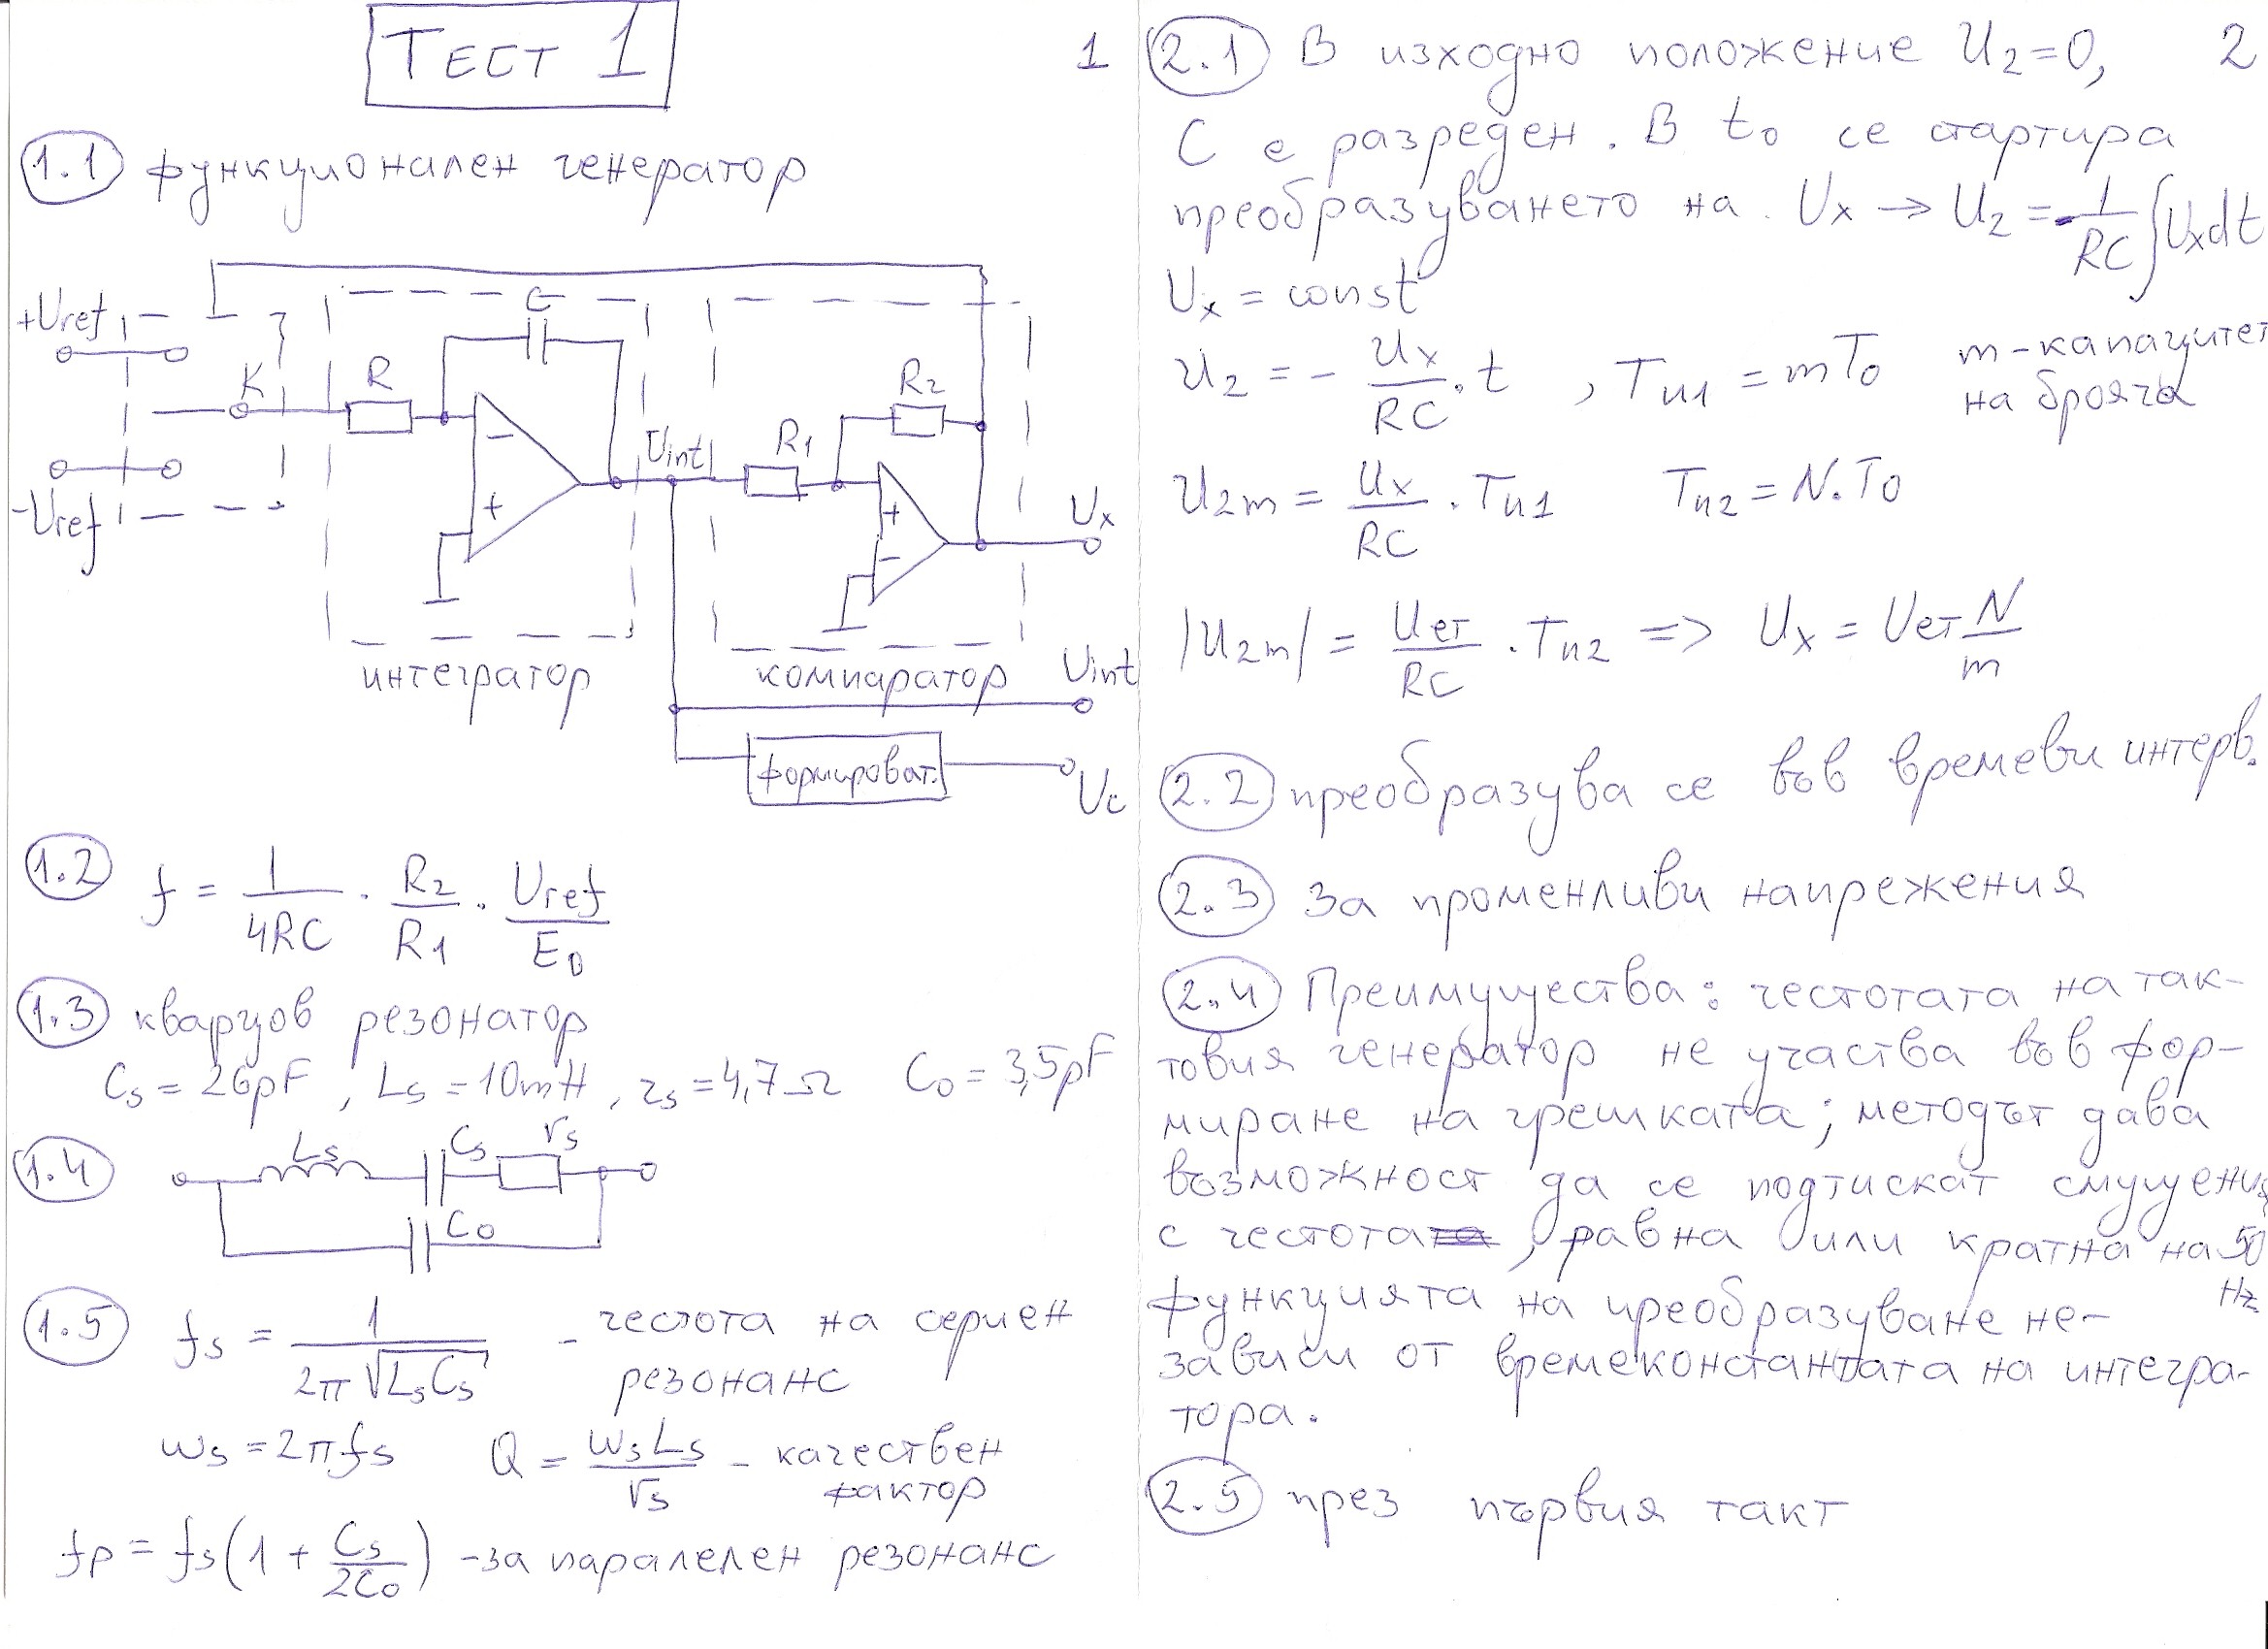 ТЕСТ 1
1
1.1 функционален генератор
+Uref
K
R
C
-Uref
-
+
Uint
R1
R2
+
-
Ux
интегратор
компаратор
Uint
формироват.
Uc
1.2 f = 1/4RC . R2/R1 . Uref/E0
1.3 кварцов резонатор
Cs = 26pF, Ls = 10mH, rs = 4,7Ω C0 = 3,5pF
1.4 Ls Cs rs
C0
1.5 fs = 1/2π√LsCs - честота на сериен
резонанс
ws = 2πfs Q = wsLs/rs - качествен
фактор
fp = fs(1 + Cs/2C0) - за паралелен резонанс
2.1 В изходно положение U2=0, 2
C е разреден. В t0 се стартира
преобразуването на Ux → U2 = -1/RC ∫Uxdt
Ux = const
U2 = - Ux/RC . t , Tи1 = mT0 m-капацитет
на брояча
U2m = Ux/RC . Tи1 Tи2 = N.T0
|U2m| = Uет/RC . Tи2 => Ux = Uет N/m
2.2 преобразува се във времеви интерв.
2.3 За променливи напрежения
2.4 Преимущества: честотата на так-
товия генератор не участва във фор-
миране на грешката; методът дава
възможност да се подтискат смущения
с честота, равна или кратна на 50
Hz
функцията на преобразуване не-
зависи от времеконстантата на интегра-
тора.
2.5 през първия такт